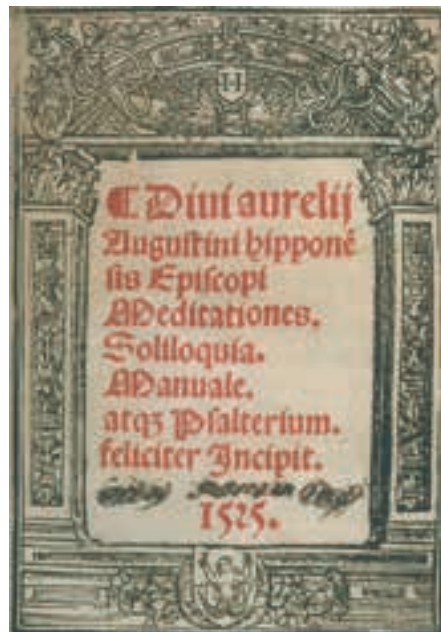 ¶ Diui aurelij
Augustini hipponẽ
sis Episcopi
Meditationes.
Soliloquia.
Manuale.
atqꝫ Psalterium.
feliciter Incipit.
1525.